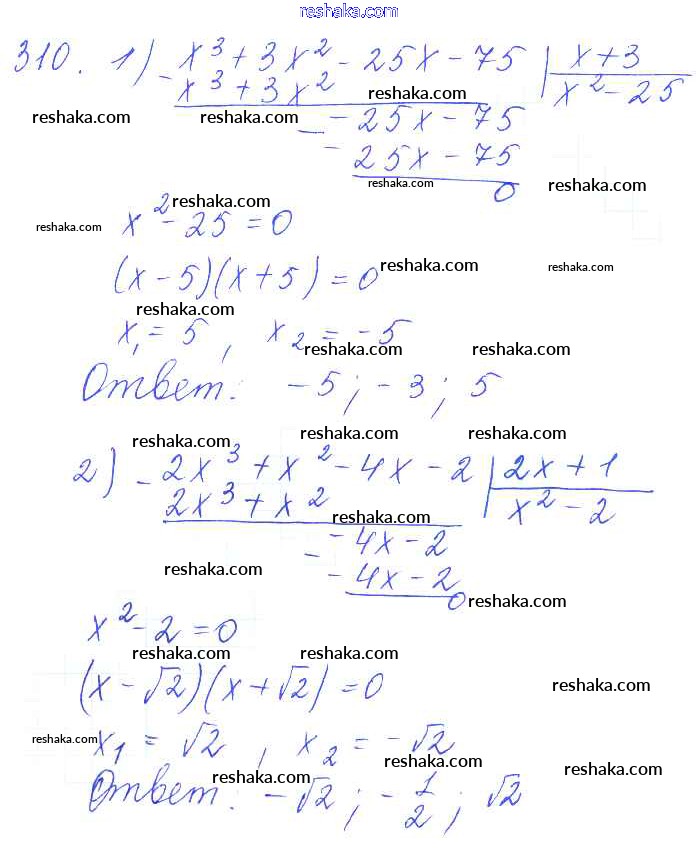 reshaka.com
310. 1) - x³ + 3x² - 25x - 75 | x + 3
x³ + 3x² | x² - 25
reshaka.com reshaka.com reshaka.com
- - 25x - 75
- 25x - 75
reshaka.com reshaka.com
0
reshaka.com
reshaka.com x² - 25 = 0
(x - 5)(x + 5) = 0 reshaka.com reshaka.com
reshaka.com
x₁ = 5, x₂ = -5
reshaka.com reshaka.com
Ответ: -5; -3; 5
reshaka.com reshaka.com reshaka.com
2) - 2x³ + x² - 4x - 2 | 2x + 1
2x³ + x² | x² - 2
reshaka.com
- - 4x - 2
reshaka.com - 4x - 2
0 reshaka.com
x² - 2 = 0
reshaka.com reshaka.com
(x - √2)(x + √2) = 0 reshaka.com
reshaka.com x₁ = √2, x₂ = -√2
reshaka.com reshaka.com reshaka.com
Ответ: -√2; -1/2; √2